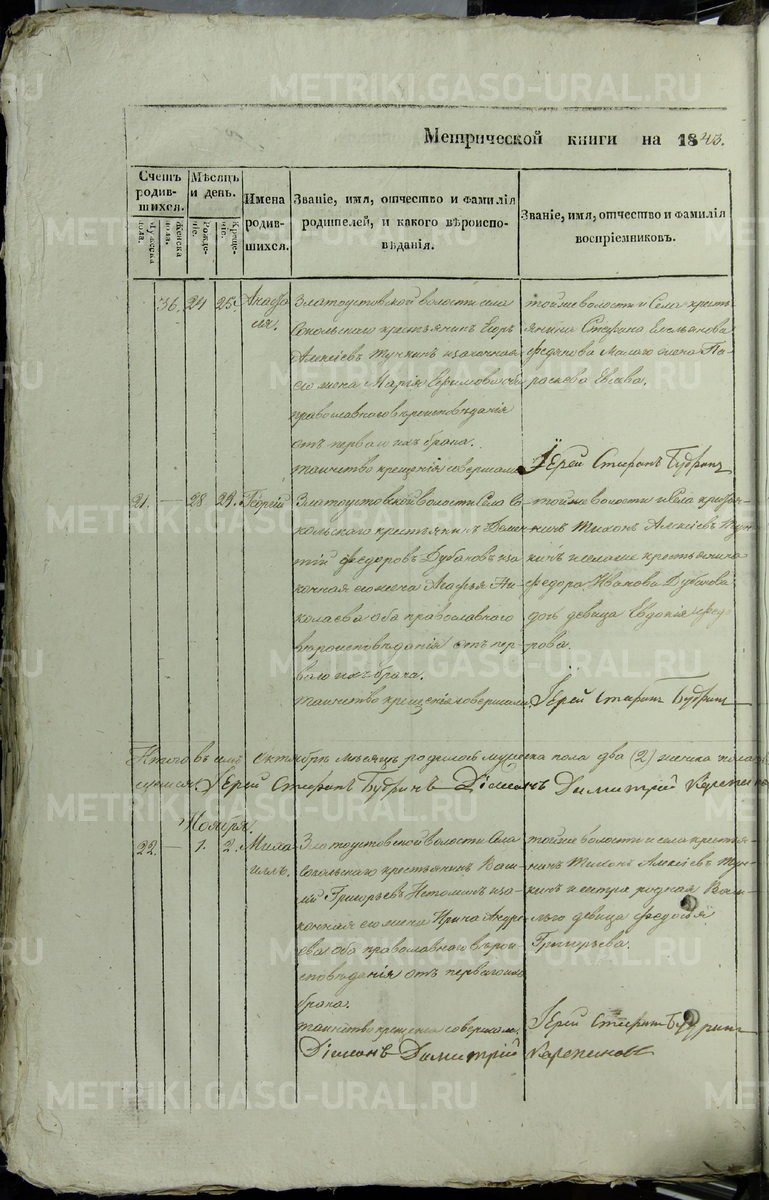 METRIKI.GASO-URAL.RU
Метрической книги на 1843.
Счетъ родившихся.
Мѣсяцъ и день.
Имена родившихся.
Званіе, имя, отчество и фамилія родителей, и какого вѣроисповѣданія.
Званіе, имя, отчество и фамилія воспріемниковъ.
Мужеска пола.
Женска пола.
Рожденіе.
Крещеніе.
36. 24 25.
Златоустовской волости села
Сокольскаго крестьянинъ Егоръ
Алексіевъ Тункинъ и законная
его жена Марія
православнаго вѣроисповѣданія
отъ перваго ихъ брака.
таинство крещенія совершалъ
тойже волости и Села кресть
янина Стефана Емельянова
жена Па
раскева
Іерей Стефанъ Будринъ
21. — 28 29. Георгій
Златоустовской волости Села Со
кольскаго крестьянинъ Демен
тій Федоровъ Дубановъ и за
конная его жена Агафья Ни
колаева оба православнаго
вѣроисповѣданія отъ пер
ваго ихъ брака.
таинство крещенія совершалъ
тойже волости и Села кресть
нинъ Тихонъ Алексіевъ Тун
кинъ и крестьянина
Федора Иванова Дубанова
дочь девица Евдокія Федо
рова.
Іерей Стефанъ Будринъ
Итого въ семъ Октябрѣ мѣсяцѣ родилось мужеска пола два (2) женска пола
Іерей Стефанъ Будринъ Діаконъ Димитрій
Ноября.
22. — 1. 2. Миха
илъ.
Златоустовской волости Села
Сокольскаго крестьянинъ Васи
лій Григорьевъ и за
конная его жена Ирина Андре
ева оба православнаго вѣрои
сповѣденія отъ перваго ихъ
брака.
таинство крещенія совершалъ
тойже волости и села крестья
нинъ Тихонъ Алексіевъ Тун
кинъ и сестра родная Васи
лья девица Федосья
Григорьева.
Іерей Стефанъ Будринъ
Діаконъ Димитрій